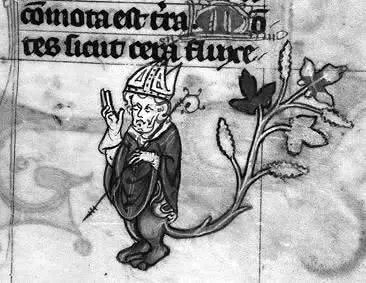 cōmota est tr̄a Mō
tes sicut cera fluxe